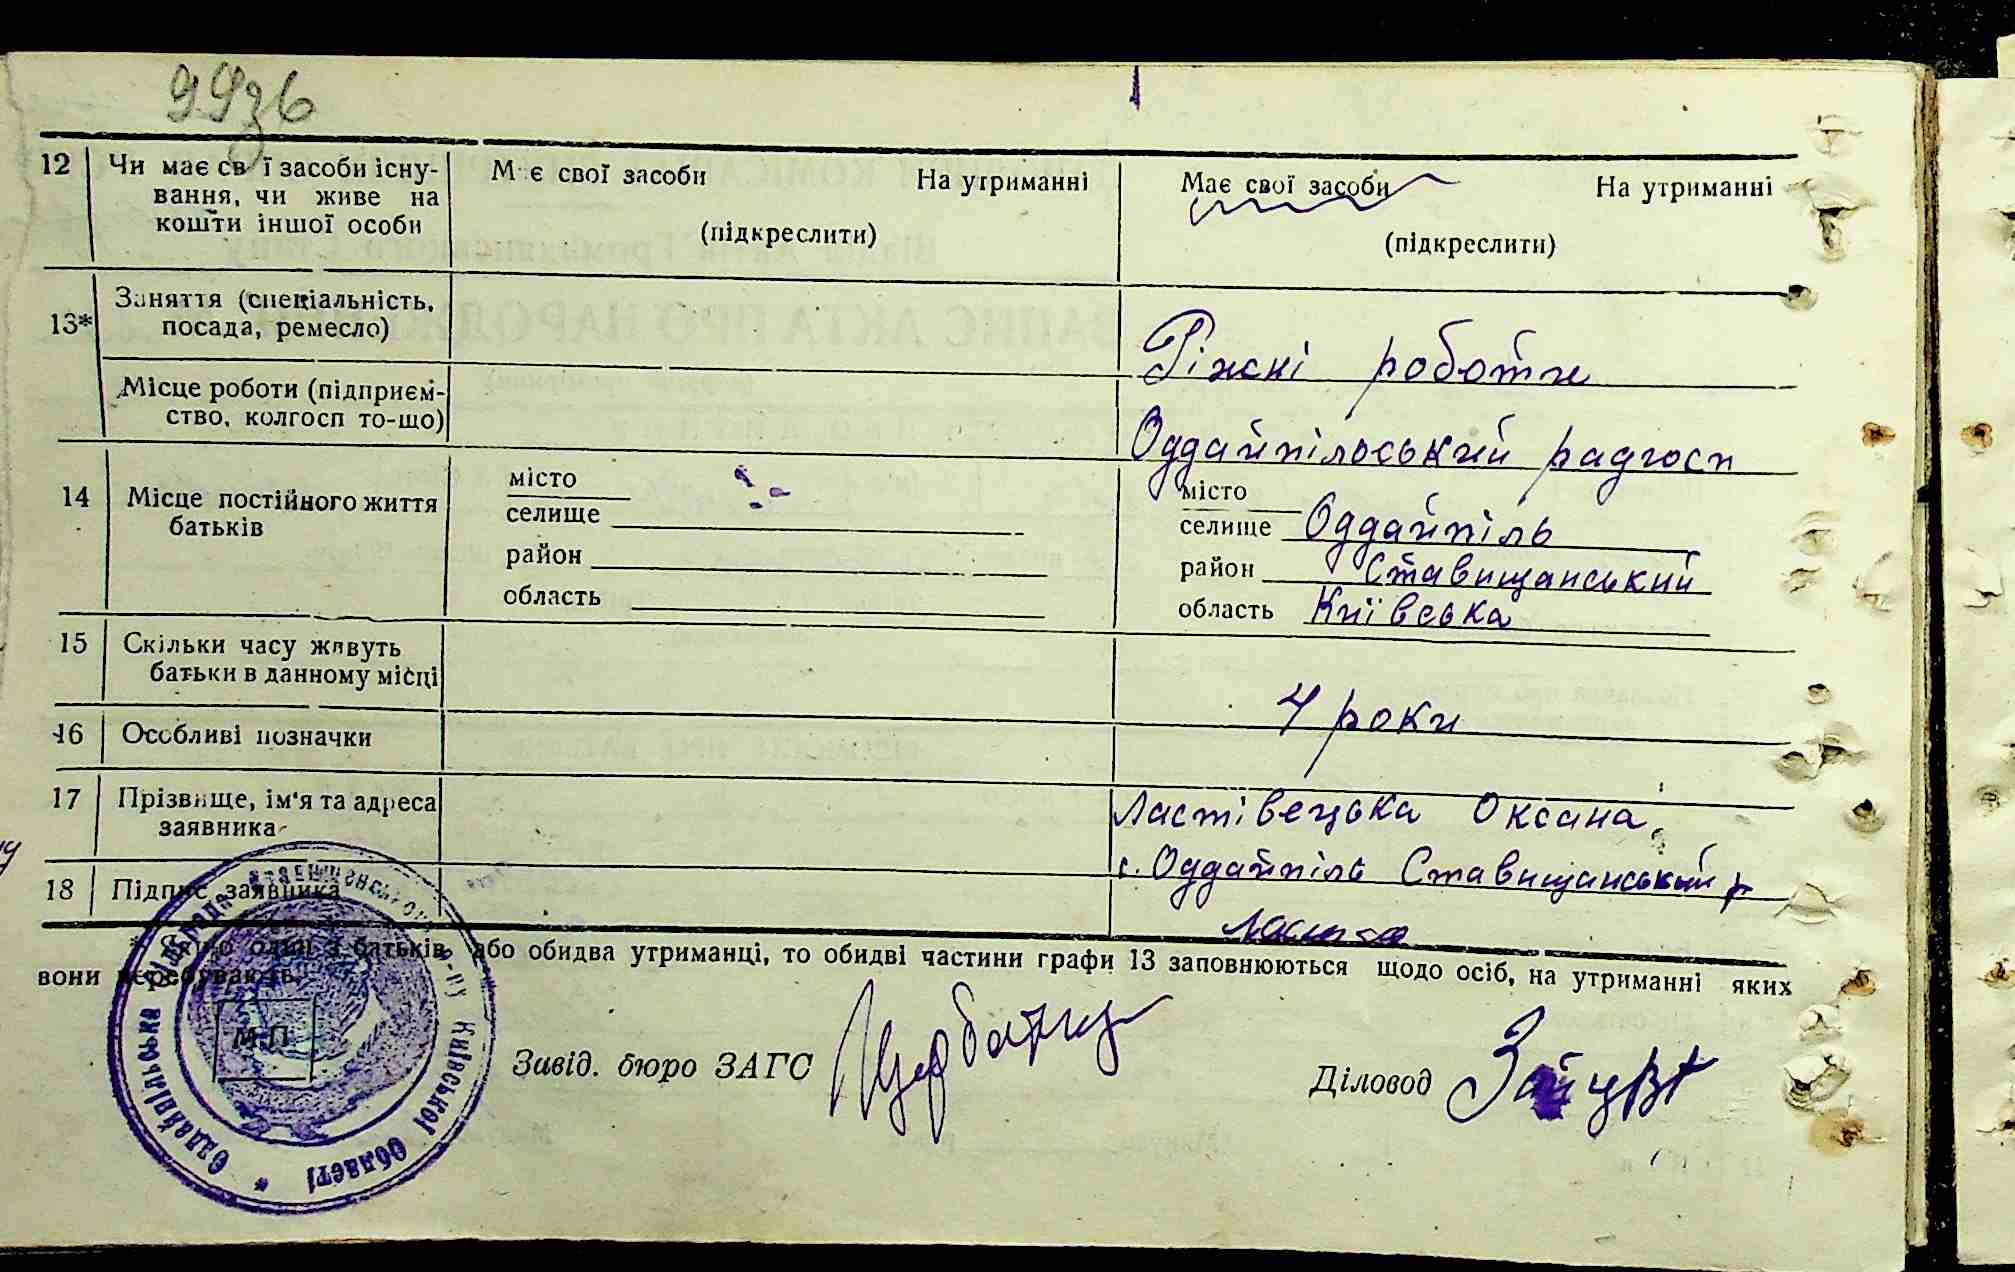 12 Чи має св ї засоби існу- М є свої засоби На утриманні Має свої засоби На утриманні
вання, чи живе на
кошти іншої особи (підкреслити) (підкреслити)
Заняття (спеціальність,
13* посада, ремесло) Ріжскі роботи
Місце роботи (підприєм-
ство, колгосп то-що) Оддайпільоський радгосп
14 Місце постійного життя місто місто
батьків селище селище Оддайпіль
район район Ставищанський
область область Київська
15 Скільки часу живуть
батьки в данному місці 4 роки
16 Особливі позначки
17 Прізвище, ім'я та адреса Ластівецька Оксана,
заявника с. Оддайпіль Ставищанський р
18 Підпис заявника
* Якщо один з батьків або обидва утриманці, то обидві частини графи 13 заповнюються щодо осіб, на утриманні яких
вони перебувають
М.П.
Завід. бюро ЗАГС Діловод
Київської Області